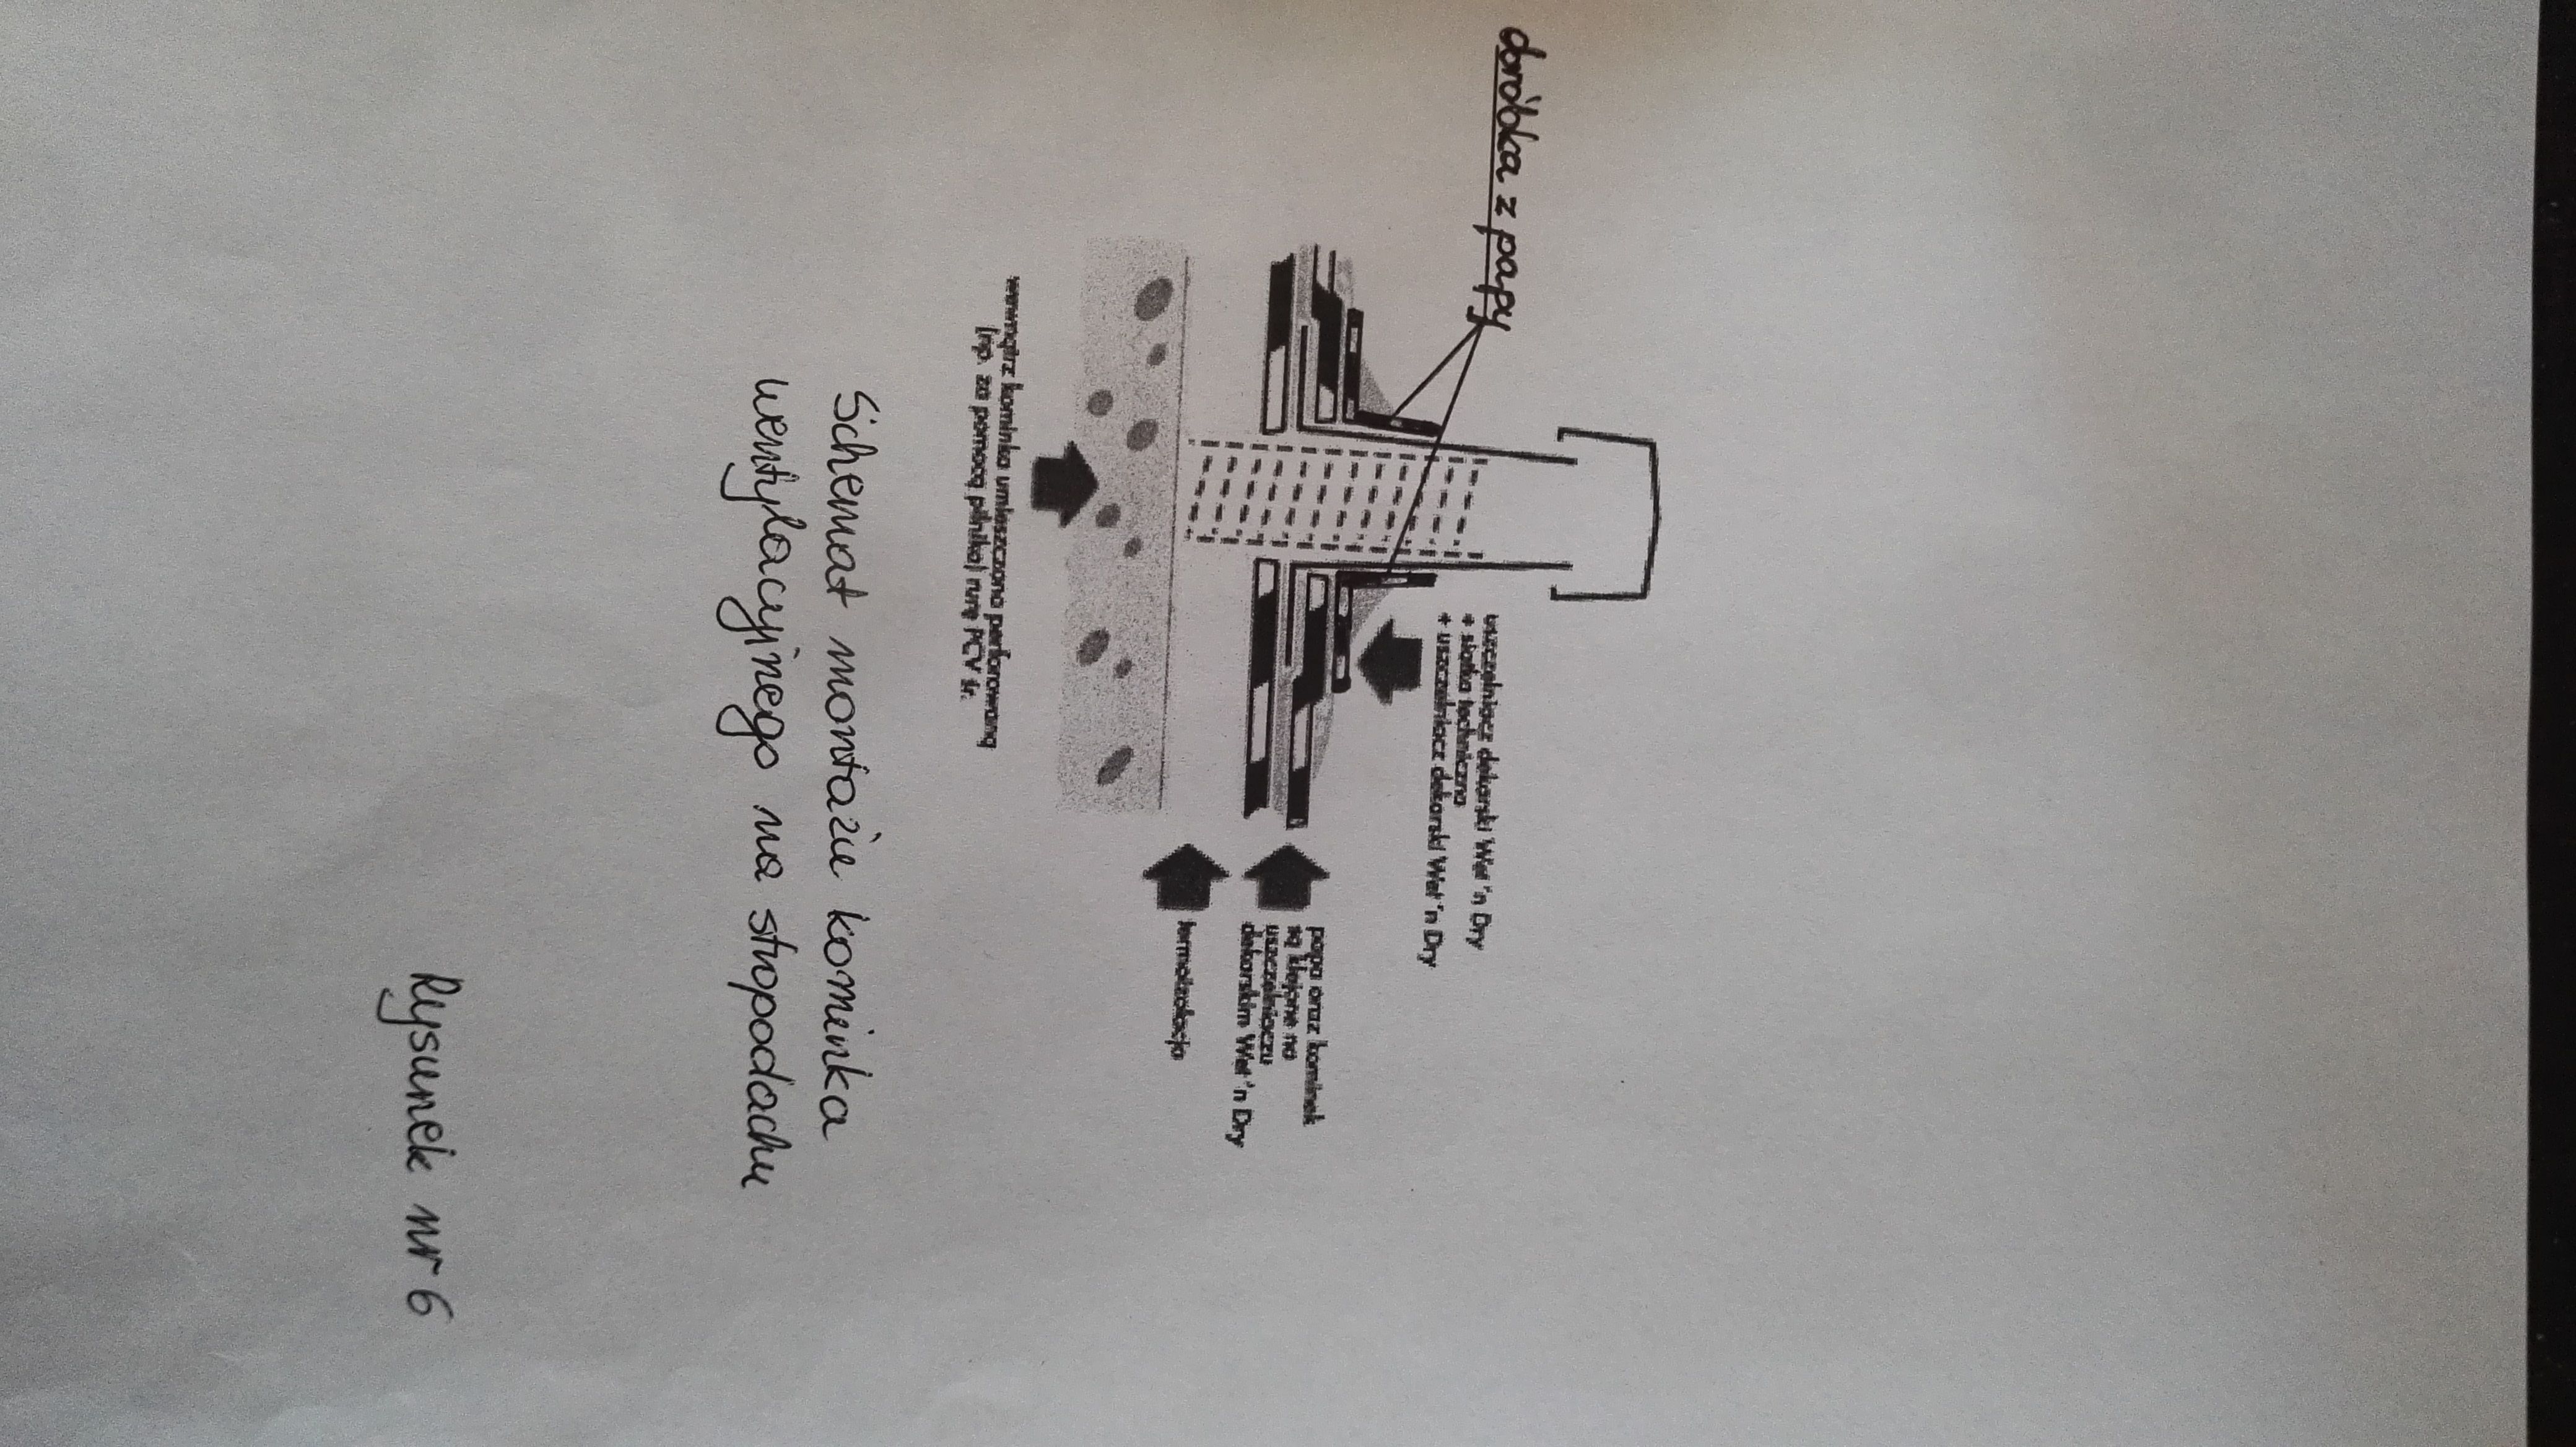 doróbka z papy
uszczelniacz dekarski Wet 'n Dry
+ siatka techniczna
+ uszczelniacz dekarski Wet 'n Dry
papa oraz kominek
są klejone na
uszczelniaczu
dekarskim Wet 'n Dry
termoizolacja
wewnątrz kominka umieszczono perforowaną
(np. za pomocą pilnika) rurę PCV śr.
Schemat montażu kominka
wentylacyjnego na stropodachu
Rysunek nr 6